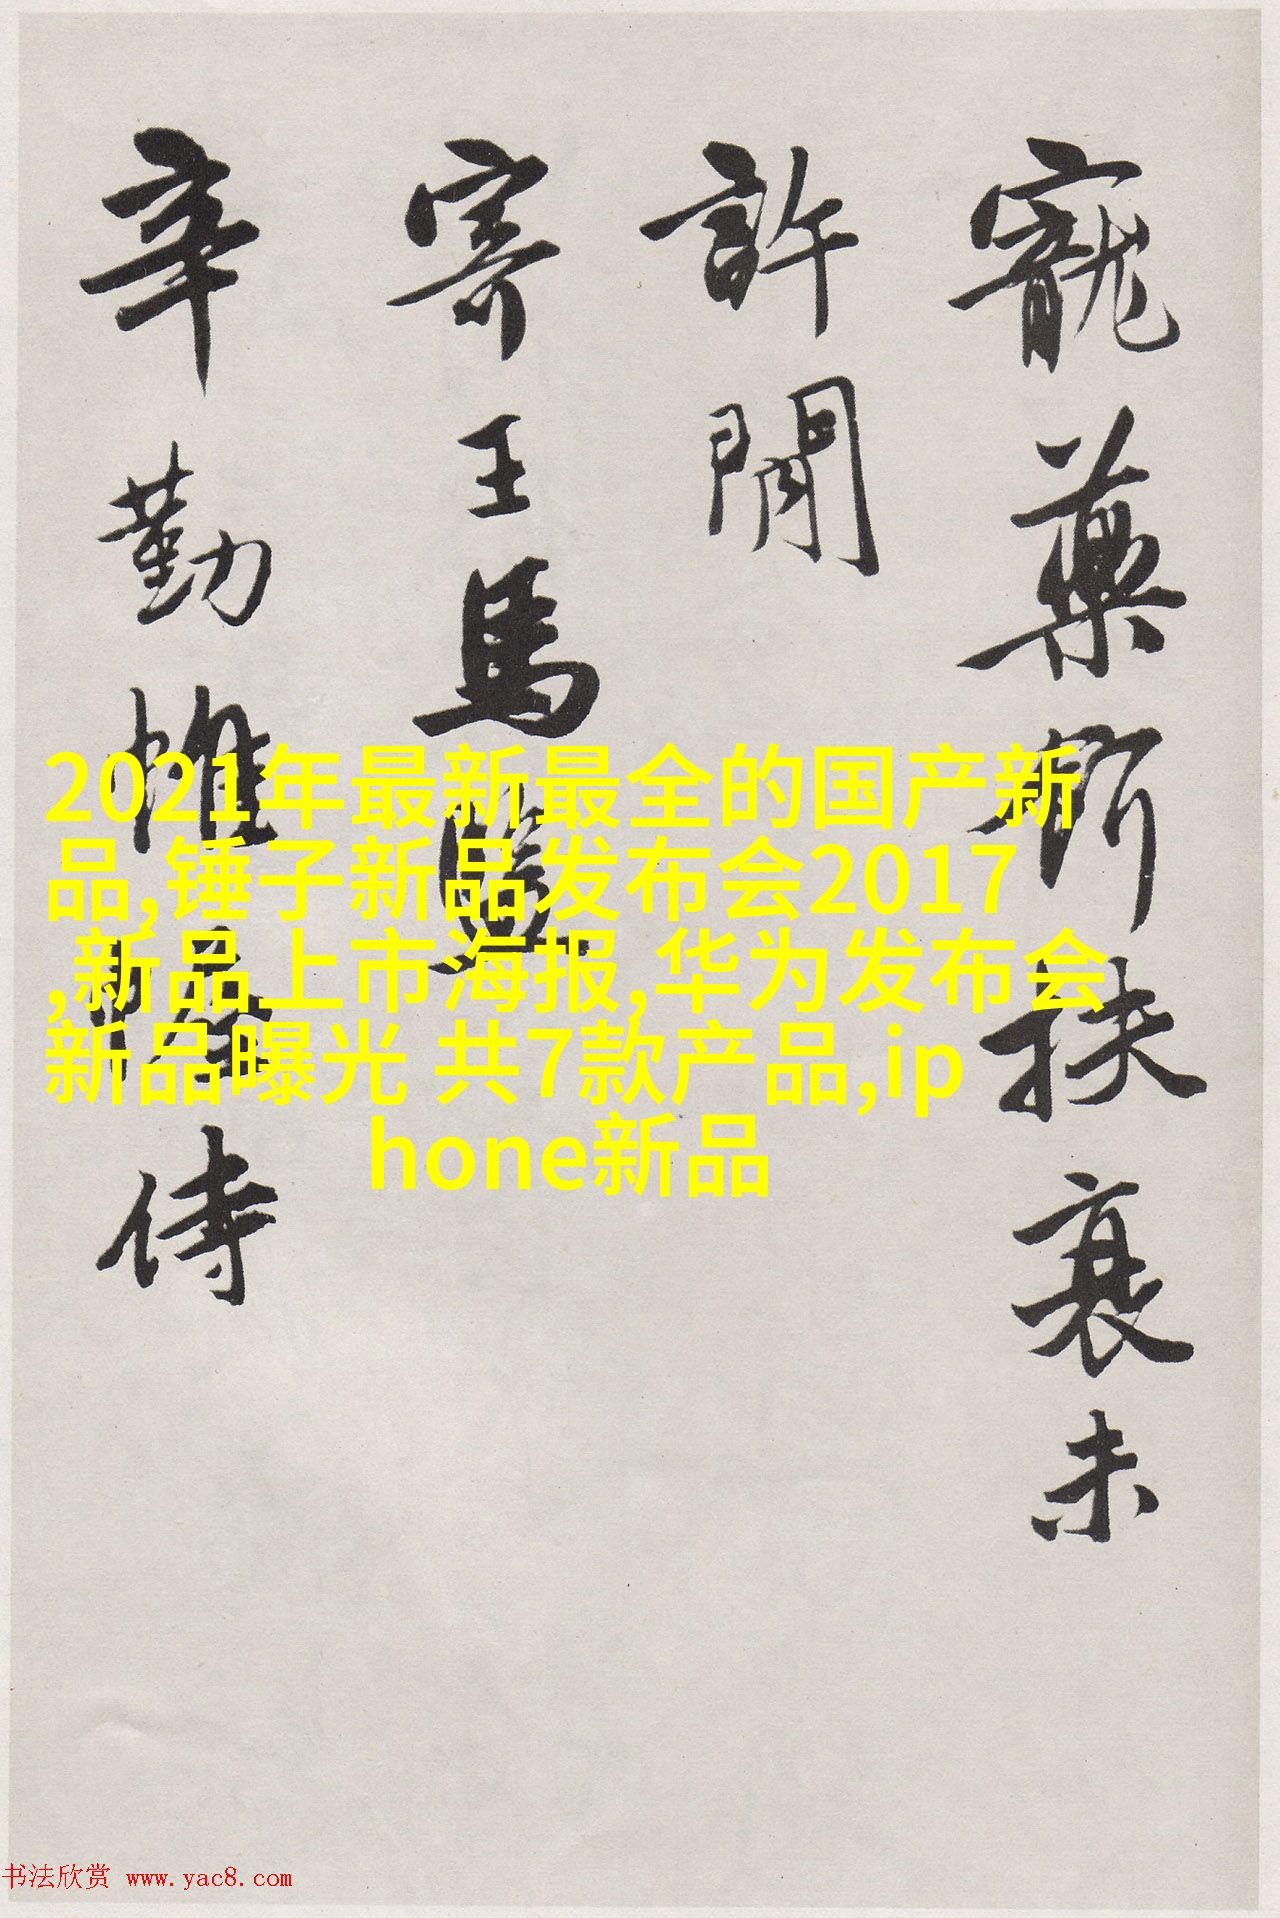 寵藥所扶衰未
許閒
寄王馬監
辛勤帷幄侍
2021年最新最全的国产新
品,锤子新品发布会2017
,新品上市海报,华为发布会
新品曝光 共7款产品,ip
hone新品
书法欣赏 www.yac8.com